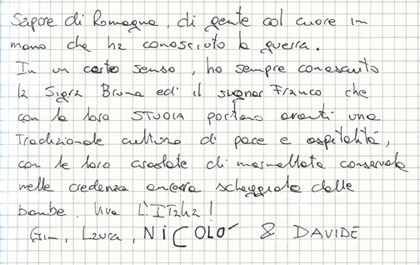 Sapore di Romagna, di gente col cuore in
mano che ha conosciuto la guerra.
In un certo senso, ho sempre conosciuto
la Sig.ra Bruna ed il signor Franco che
con la loro STUOIA portano avanti una
Tradizionale cultura di pace e ospitalità,
con le loro crostate di marmellata conservate
nelle credenze ancora scheggiate dalle
bombe. Viva L'ITalia!
Laura, NICOLO' & DAVIDE